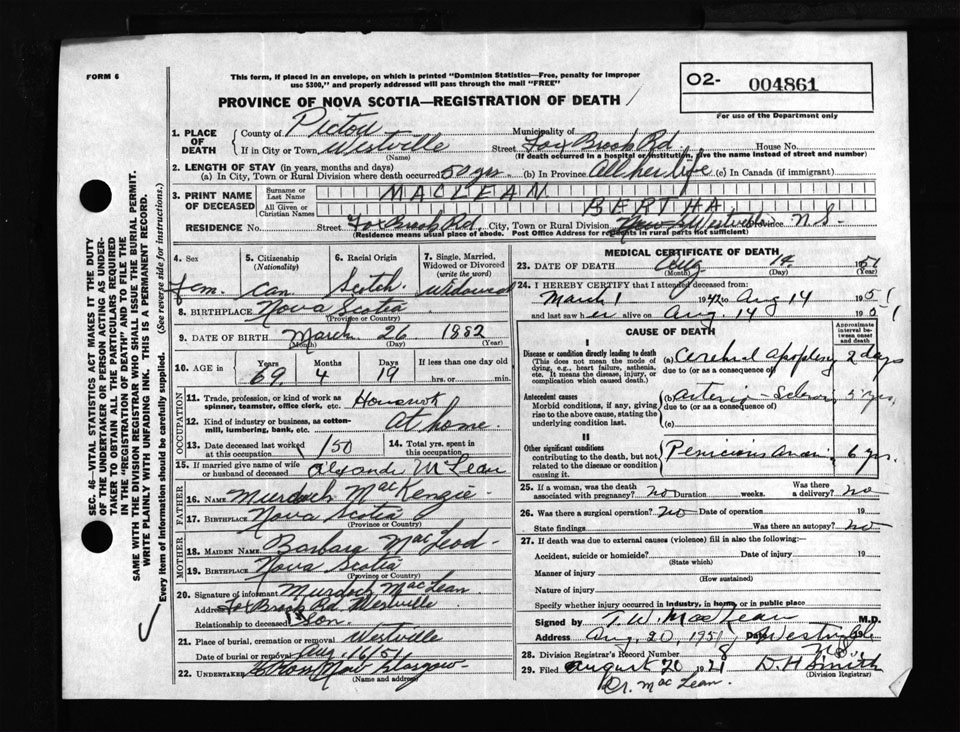 FORM 6
This form, if placed in an envelope, on which is printed "Dominion Statistics—Free, penalty for improper
use $300," and properly addressed will pass through the mail "FREE"
O2- 004861
For use of the Department only
PROVINCE OF NOVA SCOTIA—REGISTRATION OF DEATH
1. PLACE OF DEATH
County of Pictou Municipality of
If in City or Town Westville Street Fox Brook Rd House No.
(Name) (If death occurred in a hospital or institution, give the name instead of street and number)
2. LENGTH OF STAY (in years, months and days)
(a) In City, Town or Rural Division where death occurred 50 yrs (b) In Province All her life (c) In Canada (if immigrant)
3. PRINT NAME OF DECEASED
Surname or Last Name MACLEAN
All Given or Christian Names BERTHA
RESIDENCE No. Street Fox Brook Rd. City, Town or Rural Division Westville Province N.S.
(Residence means usual place of abode. Post Office Address for residents in rural parts not sufficient)
4. Sex Fem.
5. Citizenship (Nationality) Can
6. Racial Origin Scotch
7. Single, Married, Widowed or Divorced (write the word) Widowed
8. BIRTHPLACE Nova Scotia
(Province or Country)
9. DATE OF BIRTH March 26 1882
(Month) (Day) (Year)
10. AGE in Years 69 Months 4 Days 19 If less than one day old
hrs. or min.
OCCUPATION
11. Trade, profession, or kind of work as spinner, teamster, office clerk, etc. Housewk
12. Kind of industry or business, as cotton-mill, lumbering, bank, etc. At home
13. Date deceased last worked at this occupation 1/50
14. Total yrs. spent in this occupation
15. If married give name of wife or husband of deceased McLean
FATHER
16. NAME Murdoch MacKenzie
17. BIRTHPLACE Nova Scotia
(Province or Country)
MOTHER
18. MAIDEN NAME Barbara MacLeod
19. BIRTHPLACE Nova Scotia
(Province or Country)
20. Signature of informant Murdoch MacLean
Address Fox Brook Rd Westville
Relationship to deceased Son.
21. Place of burial, cremation or removal Westville
Date of burial or removal Aug. 16/51
22. UNDERTAKER New Glasgow
(Name and address)
MEDICAL CERTIFICATE OF DEATH
23. DATE OF DEATH Aug 14 1951
(Month) (Day) (Year)
24. I HEREBY CERTIFY that I attended deceased from:
March 1 1942 to Aug 14 1951
and last saw her alive on Aug. 14 1951
CAUSE OF DEATH
Approximate interval between onset and death
I
Disease or condition directly leading to death
(This does not mean the mode of dying, e.g., heart failure, asthenia, etc. It means the disease, injury, or complication which caused death.)
(a) Cerebral Apoplexy 2 days
due to (or as a consequence of)
Antecedent causes
Morbid conditions, if any, giving rise to the above cause, stating the underlying condition last.
(b) Arterio-Sclerosis 5 yrs,
due to (or as a consequence of)
(c)
II
Other significant conditions
contributing to the death, but not related to the disease or condition causing it.
Penicious 6 yrs.
25. If a woman, was the death associated with pregnancy? No Duration weeks. Was there a delivery? No
26. Was there surgical operation? No Date of operation 19
State findings Was there an autopsy? No
27. If death was due to external causes (violence) fill in also the following:—
Accident, suicide or homicide? Date of injury 19
(State which)
Manner of injury
(How sustained)
Nature of injury
Specify whether injury occurred in industry, in home or in public place
Signed by T. W. MacLean M.D.
Address Aug. 20, 1951 Date Westville
N.S.
28. Division Registrar's Record Number 8
29. Filed August 20 1951 D. H. Smith
(Division Registrar)
Dr. MacLean.
SEC. 46—VITAL STATISTICS ACT MAKES IT THE DUTY
OF THE UNDERTAKER OR PERSON ACTING AS UNDER-
TAKER TO OBTAIN ALL THE PARTICULARS REQUIRED
IN THE "REGISTRATION OF DEATH" AND TO FILE THE
SAME WITH THE DIVISION REGISTRAR WHO SHALL ISSUE THE BURIAL PERMIT.
WRITE PLAINLY WITH UNFADING INK. THIS IS A PERMANENT RECORD.
Every item of information should be carefully supplied. (See reverse side for instructions.)